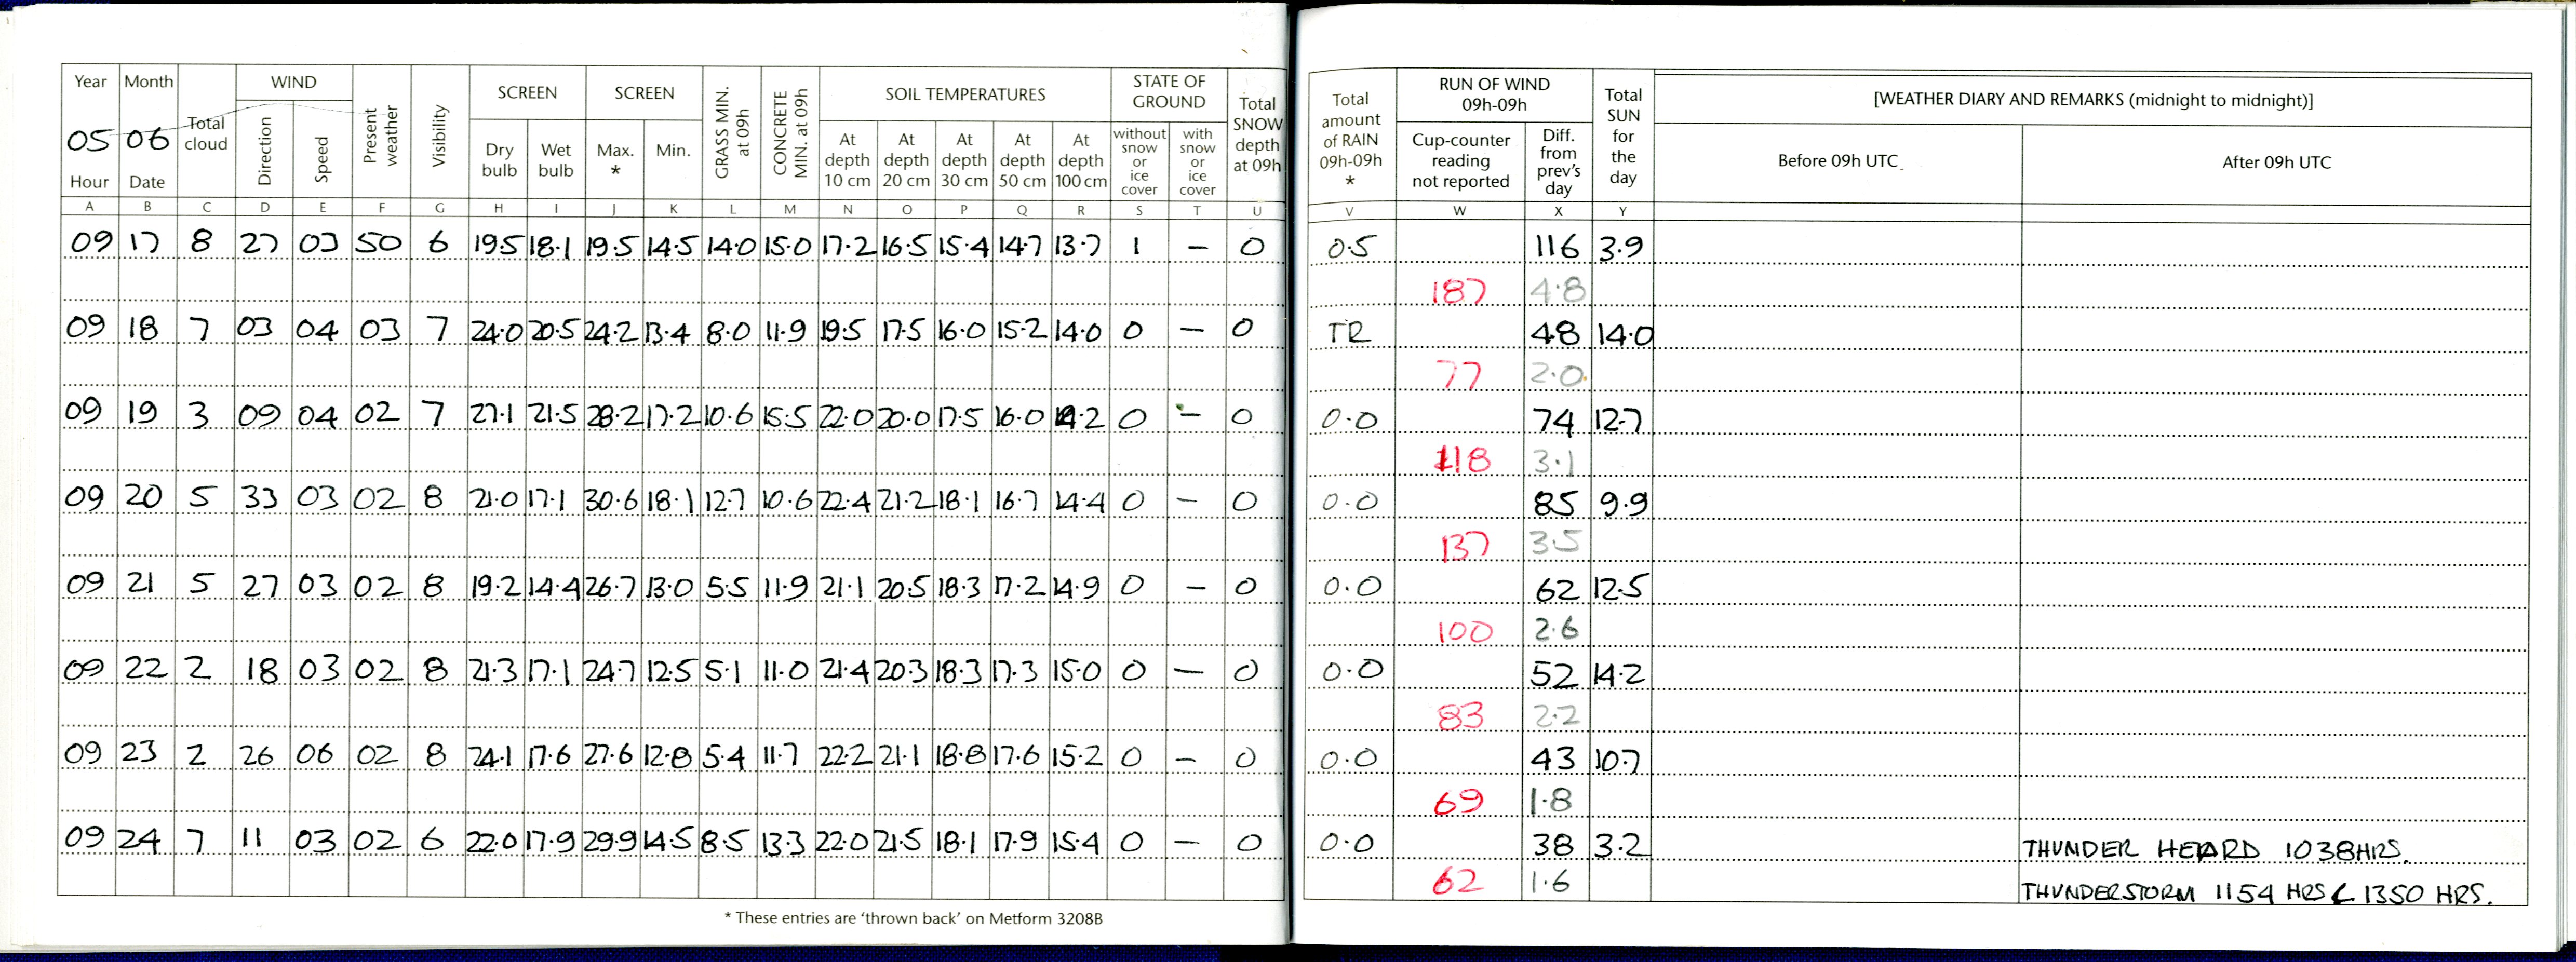 Year Month WIND SCREEN SCREEN SOIL TEMPERATURES STATE OF GROUND
05 06 Total cloud Direction Speed Present weather Visibility Dry bulb Wet bulb Max. * Min. GRASS MIN. at 09h CONCRETE MIN. at 09h At depth 10 cm At depth 20 cm At depth 30 cm At depth 50 cm At depth 100 cm without snow or ice cover with snow or ice cover Total SNOW depth at 09h
Hour Date
A B C D E F G H I J K L M N O P Q R S T U
09 17 8 27 03 50 6 19.5 18.1 19.5 14.5 14.0 15.0 17.2 16.5 15.4 14.7 13.7 1 – 0
09 18 7 03 04 03 7 24.0 20.5 24.2 13.4 8.0 11.9 19.5 17.5 16.0 15.2 14.0 0 – 0
09 19 3 09 04 02 7 27.1 21.5 28.2 17.2 10.6 15.5 22.0 20.0 17.5 16.0 14.2 0 – 0
09 20 5 33 03 02 8 21.0 17.1 30.6 18.1 12.7 10.6 22.4 21.2 18.1 16.7 14.4 0 – 0
09 21 5 27 03 02 8 19.2 14.4 26.7 13.0 5.5 11.9 21.1 20.5 18.3 17.2 14.9 0 – 0
09 22 2 18 03 02 8 21.3 17.1 24.7 12.5 5.1 11.0 21.4 20.3 18.3 17.3 15.0 0 – 0
09 23 2 26 06 02 8 24.1 17.6 27.6 12.8 5.4 11.7 22.2 21.1 18.8 17.6 15.2 0 – 0
09 24 7 11 03 02 6 22.0 17.9 29.9 14.5 8.5 13.3 22.0 21.5 18.1 17.9 15.4 0 – 0
* These entries are 'thrown back' on Metform 3208B
Total amount of RAIN 09h-09h * RUN OF WIND 09h-09h Total SUN for the day [WEATHER DIARY AND REMARKS (midnight to midnight)]
Cup-counter reading not reported Diff. from prev's day Before 09h UTC After 09h UTC
V W X Y
0.5 116 3.9
187 4.8
TR 48 14.0
77 2.0
0.0 74 12.7
118 3.1
0.0 85 9.9
137 3.5
0.0 62 12.5
100 2.6
0.0 52 14.2
83 2.2
0.0 43 10.7
69 1.8
0.0 38 3.2 THUNDER HEARD 1038HRS.
62 1.6 THUNDERSTORM 1154 HRS & 1350 HRS.